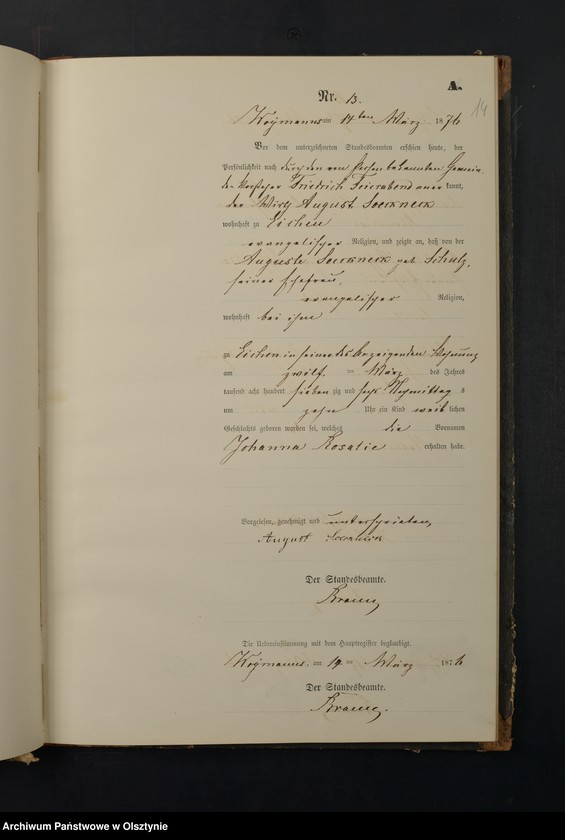 A.
14
Nr. 13.
Woymanns am 14ten März 1876
Vor dem unterzeichneten Standesbeamten erschien heute, der
Persönlichkeit nach durch den von Person bekannten Gemein-
de-Vorsteher Friedrich Feierabend aner kannt,
der Wirth August Soeckneck
wohnhaft zu Eichen
evangelischer Religion, und zeigte an, daß von der
Auguste Soecknick geb. Schulz,
seiner Ehefrau,
evangelischer Religion,
wohnhaft bei ihm
zu Eichen in seiner des Anzeigenden Wohnung
am zwölf- ten März des Jahres
tausend acht hundert sieben zig und sechs Nachmittag s
um zehn Uhr ein Kind weib lichen
Geschlechts geboren worden sei, welches die Vornamen
Johanna Rosalie erhalten habe.
Vorgelesen, genehmigt und unterschrieben,
August
Der Standesbeamte.
Die Uebereinstimmung mit dem Hauptregister beglaubigt.
Woymanns am 14 ten März 1876
Der Standesbeamte.
Archiwum Państwowe w Olsztynie